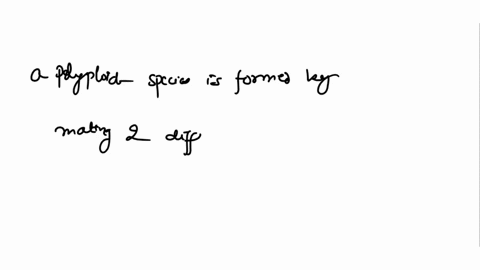 a polyploid species is formed by
mating 2 diff